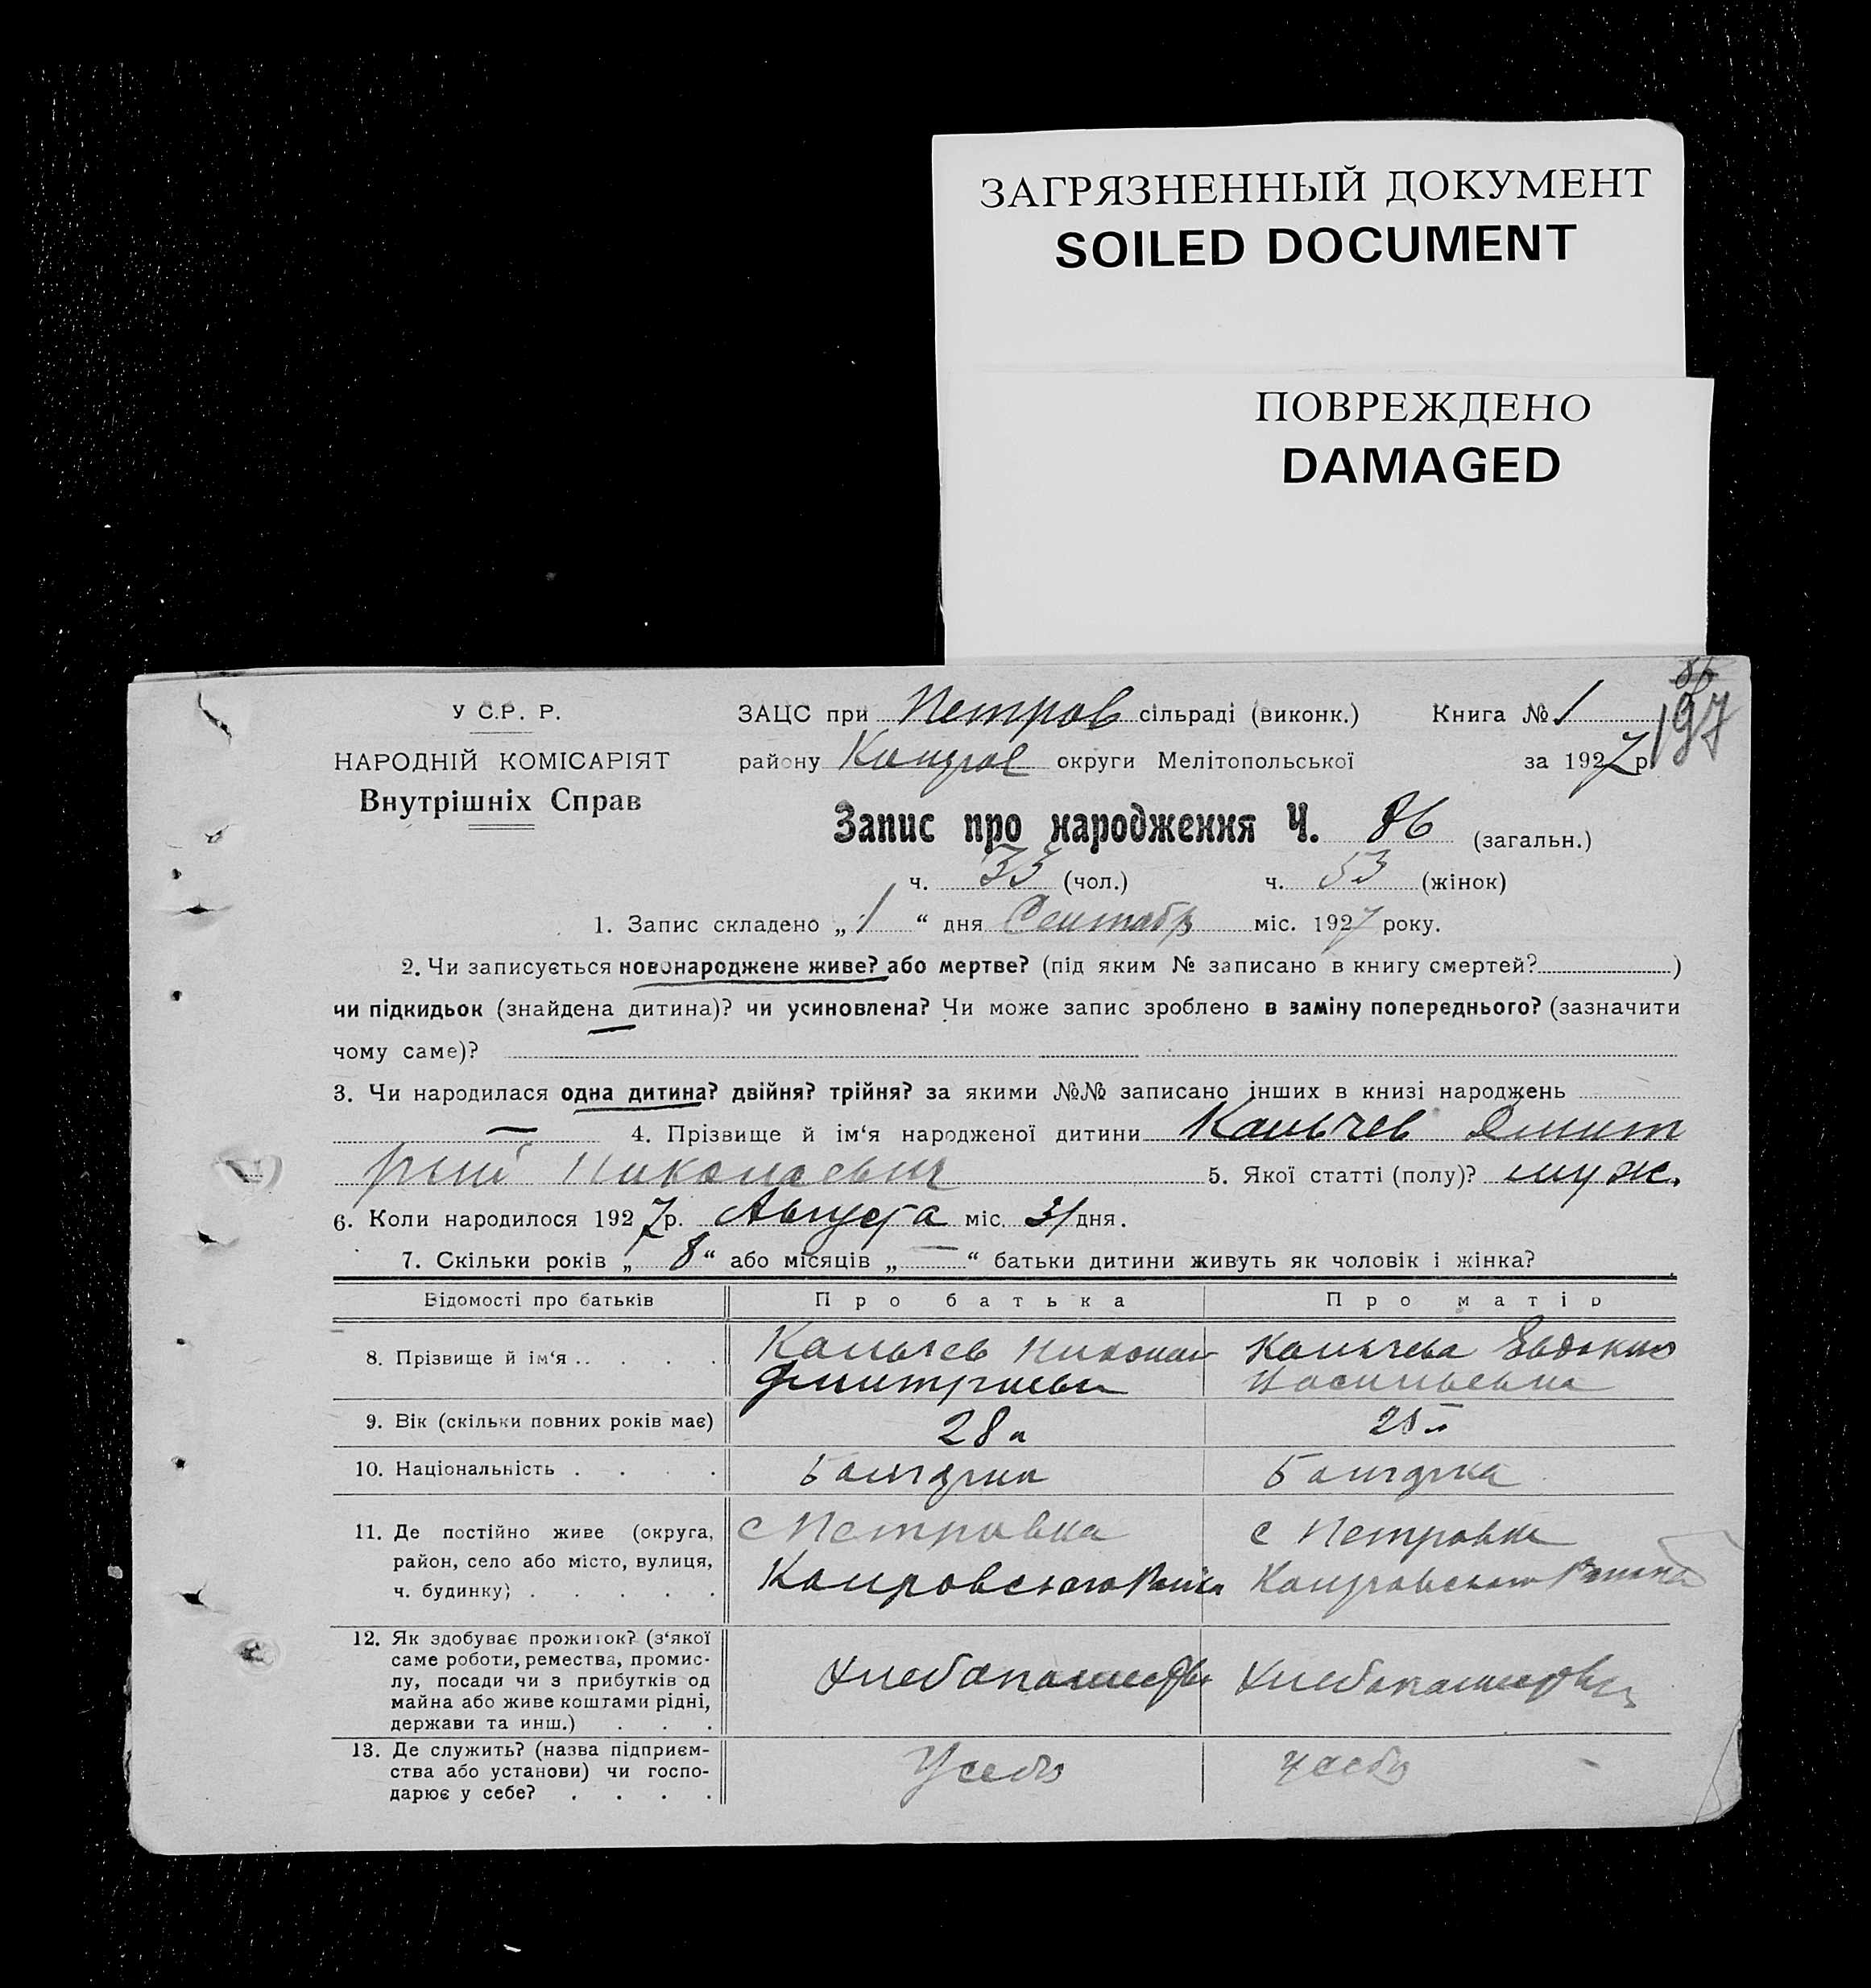 ЗАГРЯЗНЕННЫЙ ДОКУМЕНТ
SOILED DOCUMENT
ПОВРЕЖДЕНО
DAMAGED
86
197
У С.Р. Р.
НАРОДНІЙ КОМІСАРІЯТ
Внутрішніх Справ
ЗАЦС при Петров сільраді (виконк.) Книга № 1
району округи Мелітопольської за 1927 р.
Запис про народження Ч. 86 (загальн.)
ч. 33 (чол.) ч. 53 (жінок)
1. Запис складено „ 1 “ дня Сентабр міс. 1927 року.
2. Чи записується новонароджене живе? або мертве? (під яким № записано в книгу смертей? )
чи підкидьок (знайдена дитина)? чи усиновлена? Чи може запис зроблено в заміну попереднього? (зазначити
чому саме)?
3. Чи народилася одна дитина? двійня? трійня? за якими №№ записано інших в книзі народжень
— 4. Прізвище й ім‘я народженої дитини Дмит
рий Николаевич 5. Якої статті (полу)? муж.
6. Коли народилося 1927 р. Августа міс. 31 дня.
7. Скільки років „ 8 “ або місяців „ — “ батьки дитини живуть як чоловік і жінка?
Відомості про батьків Про батька Про матір
8. Прізвище й ім‘я . . . . . Николай Евдокия
Дмитриевич Васильевна
9. Вік (скільки повних років має) 28
10. Національність . . . . Болгарин Болгарка
11. Де постійно живе (округа, с Петровка с Петровка
район, село або місто, вулиця,
ч. будинку) . . . . . Каировского Района Каировского Района
12. Як здобуває прожиток? (з‘якої
саме роботи, ремества, промис-
лу, посади чи з прибутків од
майна або живе коштами рідні,
держави та инш.) . . . Хлебопашество Хлебопашество
13. Де служить? (назва підприєм-
ства або установи) чи госпо-
дарює у себе? . . . . У себя у себя